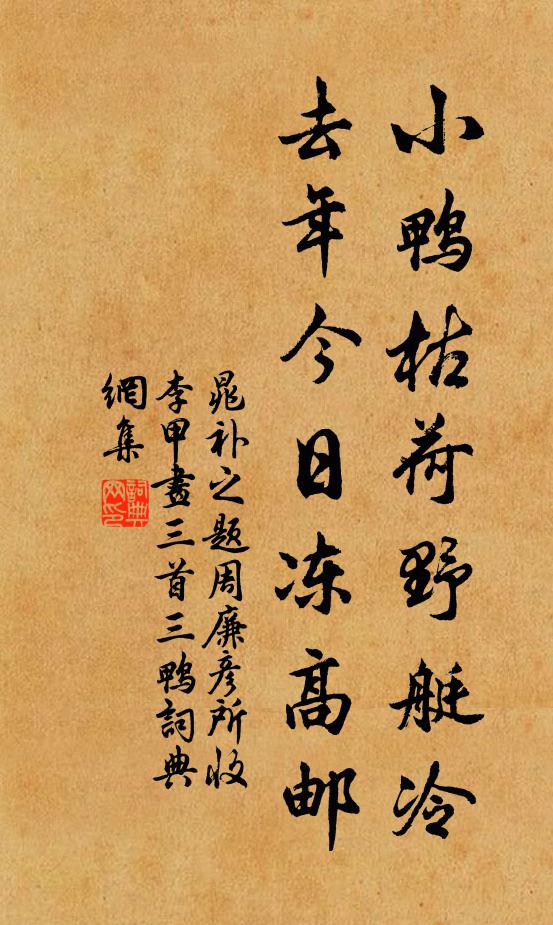 小鸭枯荷野艇冷
去年今日冻高邮
晁补之题周廉彦所收
李甲畫三首三鸭詞典
網集
詞典網印